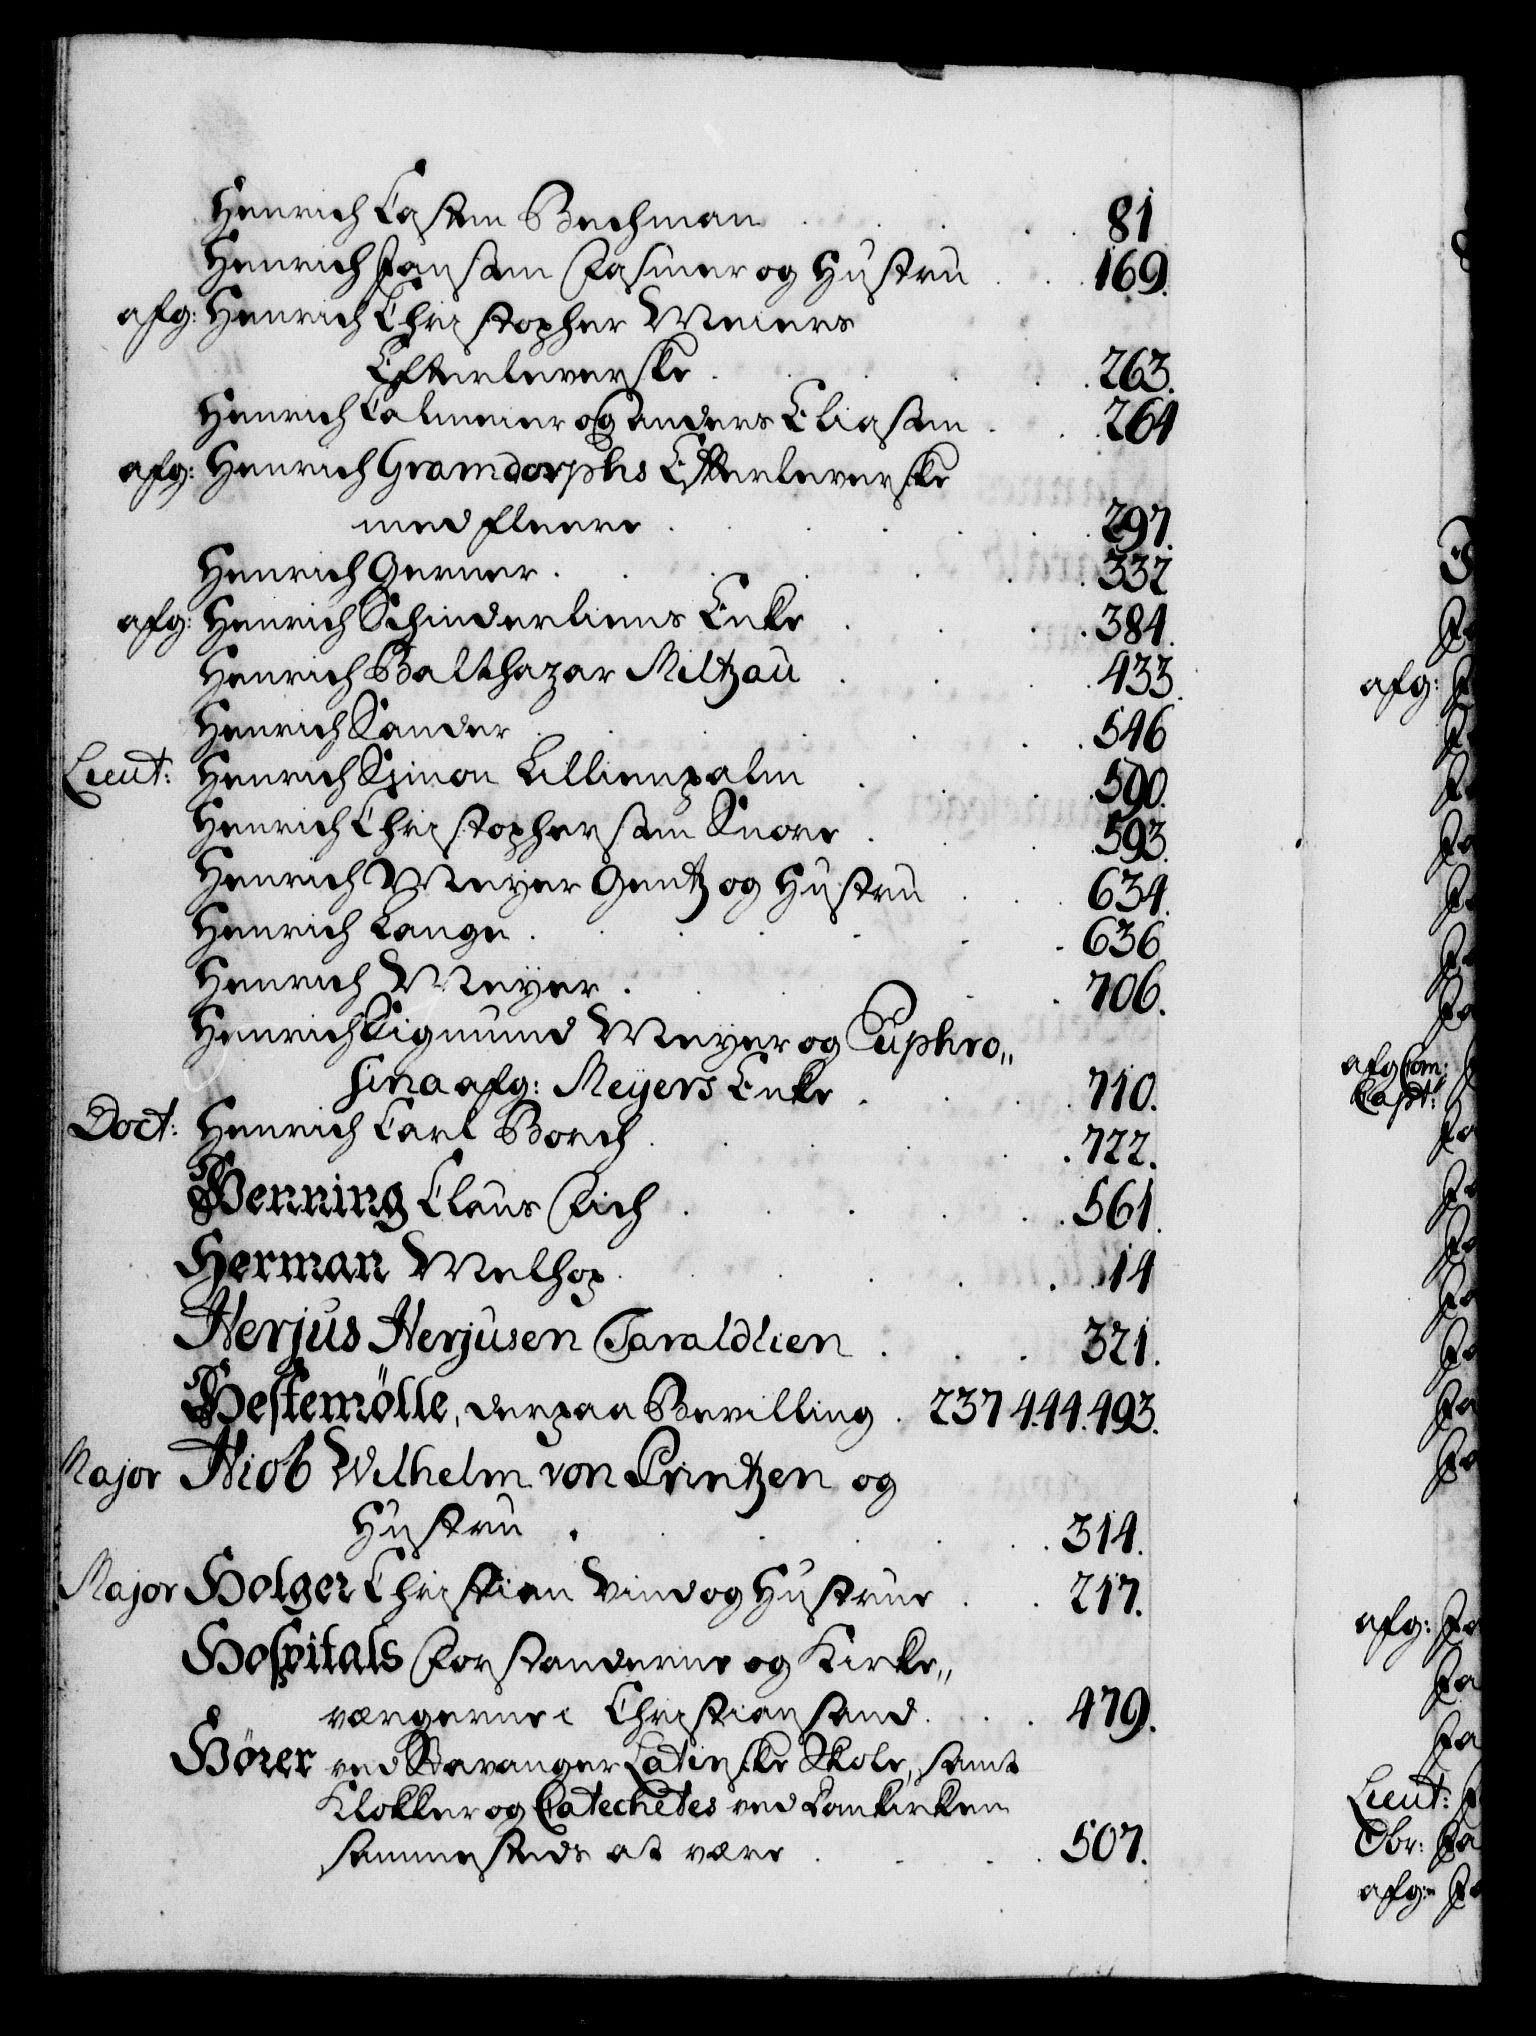 Henrich Casten Bechman . . . . 81
Henrich Jansen Fasmer og Hustru . . 169.
afg: Henrich Christopher Meiers
Efterleverske . . . . 263.
Henrich Calmeier og Anders Eliasen . . 264
afg: Henrich Gramdorphs Efterleverske
med fleere . . . . 297.
Henrich Gerner . . . . 332
afg: Henrich Schinderliens Enke . . . 384.
Henrich Balthazar Miltzau . . . 433.
Henrich Sander . . . . 546
Lieut: Henrich Simon Lillienpalm . . . 590.
Henrich Christophersen Snore . . . 593.
Henrich Meyer Gentz og Hustru . . 634.
Henrich Lange . . . . 636
Henrich Meyer . . . . 706.
Henrich Sigmund Meyer og Euphro„
sina afg: Meyers Enke . . . 710.
Doct: Henrich Carl Borch . . . . 722.
Henning Claus Fich . . . . 561.
Herman Melhop . . . . 14
Herjus Herjusen Taraldlien . . . 321.
Hestemölle, derpaa Bevilling . 237 444. 493.
Major Hiob Wilhelm von Printzen og
Hustru . . . . 314.
Major Holger Christian Vind og Hustrue . . 217.
Hospitals Forstanderne og Kirke„
værgerne i Christiansand . . . 479.
Hörer ved Stavanger Latinske Skole, samt
Klokker og Catechetes ved Domkirken
sammesteds at være . . . 507.
afg:
afg
Capt:
afg:
Lieut:
Obr:
afg: